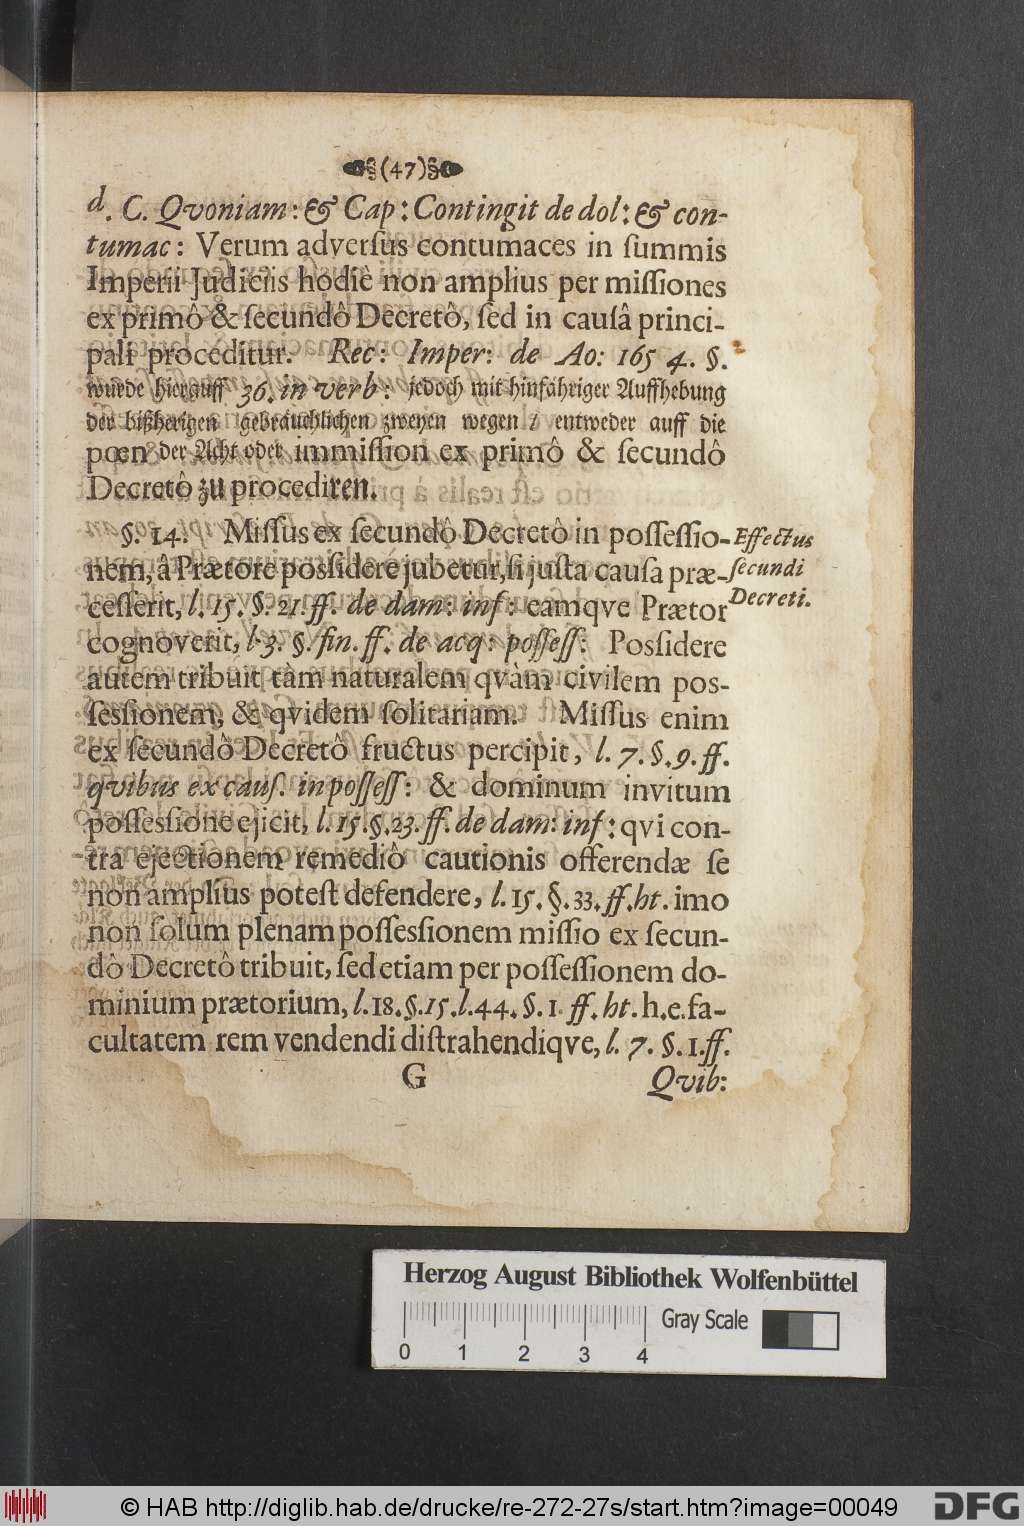 (47)
d. C. Qvoniam: & Cap: Contingit de dol: & con-
tumac: Verum adverſus contumaces in ſummis
Imperii Judiciis hodiè non amplius per miſſiones
ex primô & ſecundô Decretô, ſed in cauſâ princi-
pali proceditur. Rec: Imper: de Ao: 1654. §.
wurde hierauff 36. in verb: jedoch mit hinfähriger Auffhebung
der bißherigen gebräuchlichen zweyen wegen / entweder auff die
pœn der Acht oder immiſſion ex primô & ſecundô
Decretô zu procediren.
§. 14. Miſſus ex ſecundô Decretô in poſſeſſio-
nem, â Prætore posſidere jubetur, ſi juſta cauſa præ-
ceſſerit, l. 15. §. 21. ff. de dam: inf: eamqve Prætor
cognoverit, l. 3. §. fin. ff. de acq: poſſeſſ: Posſidere
autem tribuit tàm naturalem qvàm civilem pos-
ſesſionem, & qvidem ſolitariam. Miſſus enim
ex ſecundô Decretô fructus percipit, l. 7. §. 9. ff.
qvibus ex cauſ. in poſſeſſ: & dominum invitum
poſſesſione ejicit, l. 15. §. 23. ff. de dam: inf: qvi con-
tra ejectionem remediô cautionis offerendæ ſe
non amplius poteſt defendere, l. 15. §. 33. ff. ht. imo
non ſolum plenam poſſesſionem miſſio ex ſecun-
dò Decretô tribuit, ſed etiam per poſſeſſionem do-
minium prætorium, l. 18. §. 15. l. 44. §. 1. ff. ht. h. e. fa-
cultatem rem vendendi diſtrahendiqve, l. 7. §. 1. ff.
G Qvib:
Effectus
ſecundi
Decreti.
Herzog August Bibliothek Wolfenbüttel
0 1 2 3 4 Gray Scale
© HAB http://diglib.hab.de/drucke/re-272-27s/start.htm?image=00049
DFG